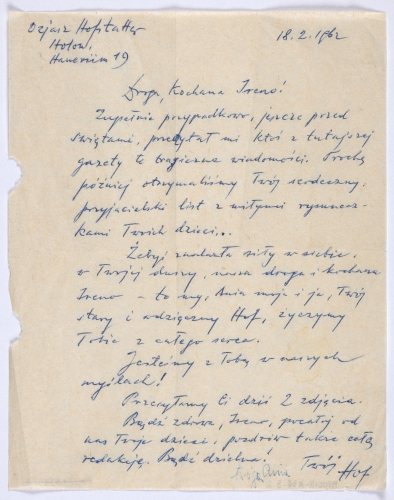 Ozjasz Hofstatter
Holon,
Haneriim 19
18.2.1962
Droga, Kochana Ireno!
Zupełnie przypadkowo, jeszcze przed
świętami, przeczytał mi ktoś z tutejszej
gazety te tragiczne wiadomości. Trochę
później otrzymaliśmy Twój serdeczny,
przyjacielski list z miłymi rysunecz-
kami Twoich dzieci...
Żebyś znalazła siły w siebie,
w Twojej duszy, nasza droga i kochana
Ireno – to my, Ania moja i ja, Twój
stary i wdzięczny Hof, życzymy
Tobie z całego serca.
Jesteśmy z Tobą w naszych
myślach!
Przesyłamy Ci dziś 2 zdjęcia.
Bądź zdrowa, Ireno, pocałuj od
nas Twoje dzieci, pozdrów także całą
redakcję. Bądź dzielna!
Twój Hof
Ania